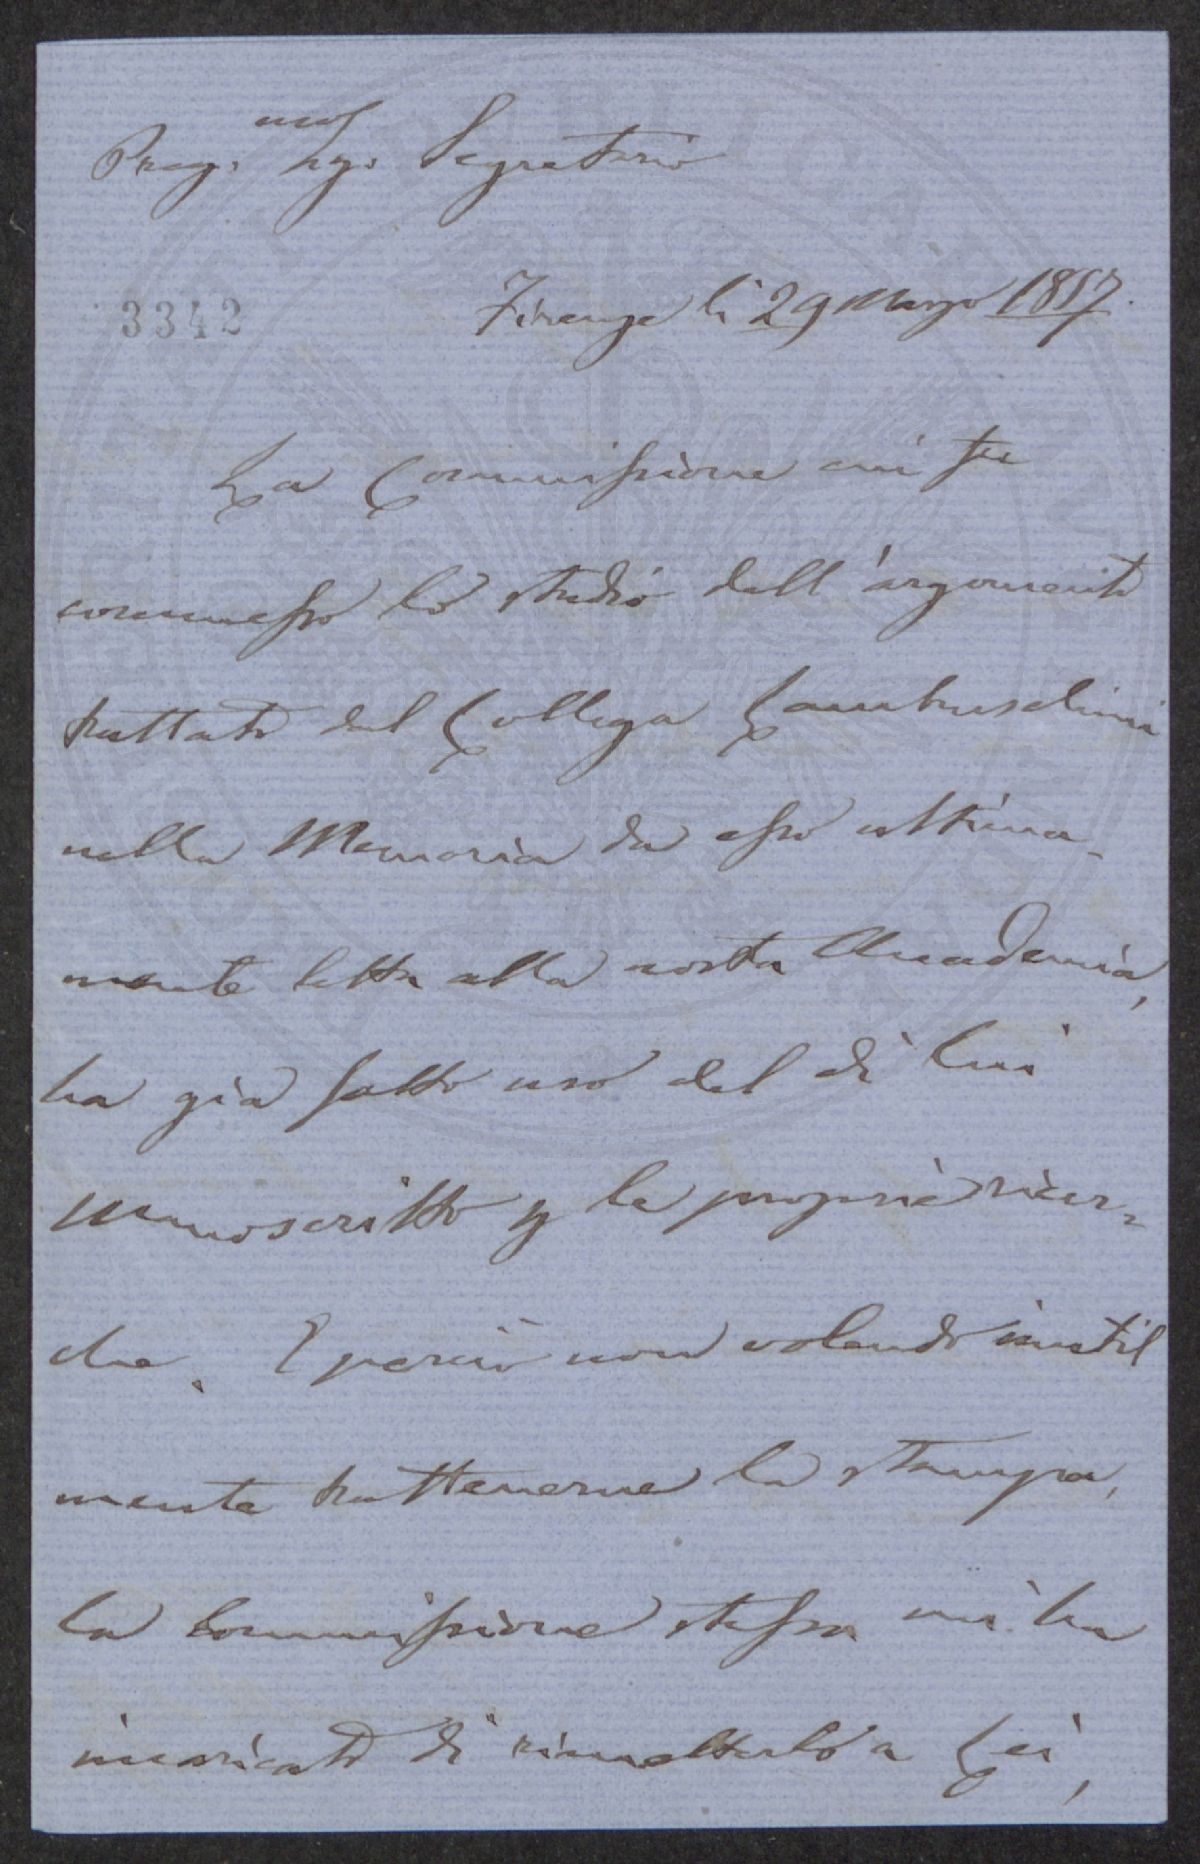 Preg.mo Sigr Segretario
3342
Firenze li 29 Marzo 1857.
La Commissione cui fu
commesso lo studio dell'argomento
trattato dal Collega Lambruschini
nella Memoria da esso ultima-
mente letta alla nostra Accademia,
ha già fatto uso del di lui
Manoscritto p le proprie ricer=
che. E perciò non volendo inutil
mente trattenerne la stampa,
la Commissione stessa mi ha
incaricato di rimetterlo a Lei,